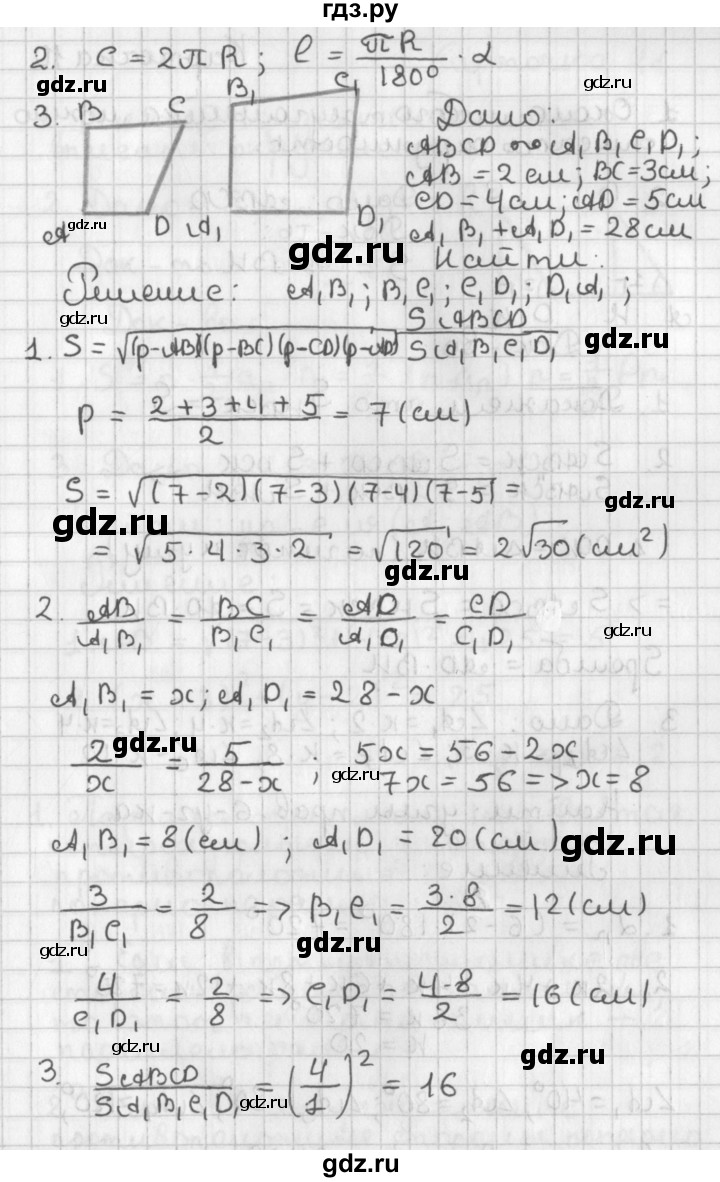 гдз.ру
2. C = 2πR; l = πR/180° · α
gdz.ru
3. B C B₁ C₁
A D A₁ D₁
gdz.ru
Дано:
ABCD ∾ A₁B₁C₁D₁;
AB = 2 см; BC = 3 см;
CD = 4 см; AD = 5 см
A₁B₁ + A₁D₁ = 28 см
gdz.ru
Найти:
Решение: A₁B₁; B₁C₁; C₁D₁; D₁A₁;
SABCD/SA₁B₁C₁D₁
gdz.ru
1. S = √(p-AB)(p-BC)(p-CD)(p-AD)
p = (2+3+4+5)/2 = 7 (см)
S = √(7-2)(7-3)(7-4)(7-5) =
gdz.ru
gdz.ru
= √5·4·3·2 = √120 = 2√30 (см²)
2. AB/A₁B₁ = BC/B₁C₁ = AD/A₁D₁ = CD/C₁D₁
gdz.ru
A₁B₁ = x; A₁D₁ = 28 - x
gdz.ru
2/x = 5/(28-x) ; 5x = 56 - 2x
gdz.ru
7x = 56 => x = 8
A₁B₁ = 8 (см); A₁D₁ = 20 (см)
gdz.ru
3/B₁C₁ = 2/8 => B₁C₁ = 3·8/2 = 12 (см)
gdz.ru
gdz.ru
4/C₁D₁ = 2/8 => C₁D₁ = 4·8/2 = 16 (см)
gdz.ru
gdz.ru
3. SABCD/SA₁B₁C₁D₁ = (4/1)² = 16
gdz.ru
gdz.ru